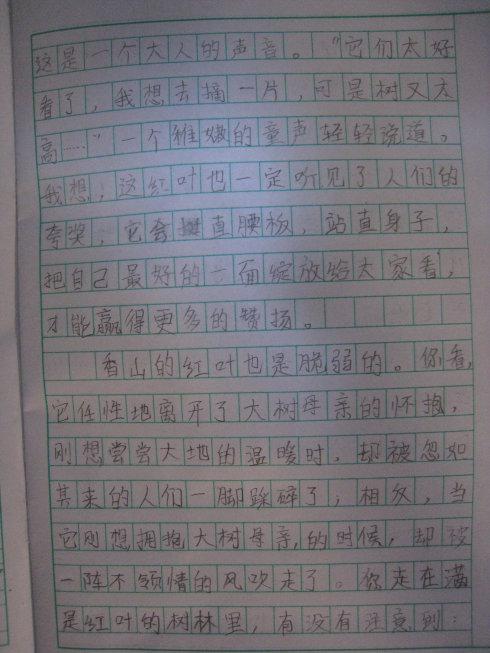 这是一个大人的声音。“它们太好
看了，我想去摘一片，可是树又太
高……”一个稚嫩的童声轻轻说道。
我想，这红叶也一定听见了人们的
夸奖，它会挺直腰板，站直身子，
把自己最好的一面绽放给大家看，
才能赢得更多的赞扬。
香山的红叶也是脆弱的。你看，
它任性地离开了大树母亲的怀抱，
刚想尝尝大地的温暖时，却被忽如
其来的人们一脚踩碎了；相反，当
它刚想拥抱大树母亲的时候，却被
一阵不领情的风吹走了。你走在满
是红叶的树林里，有没有注意到：